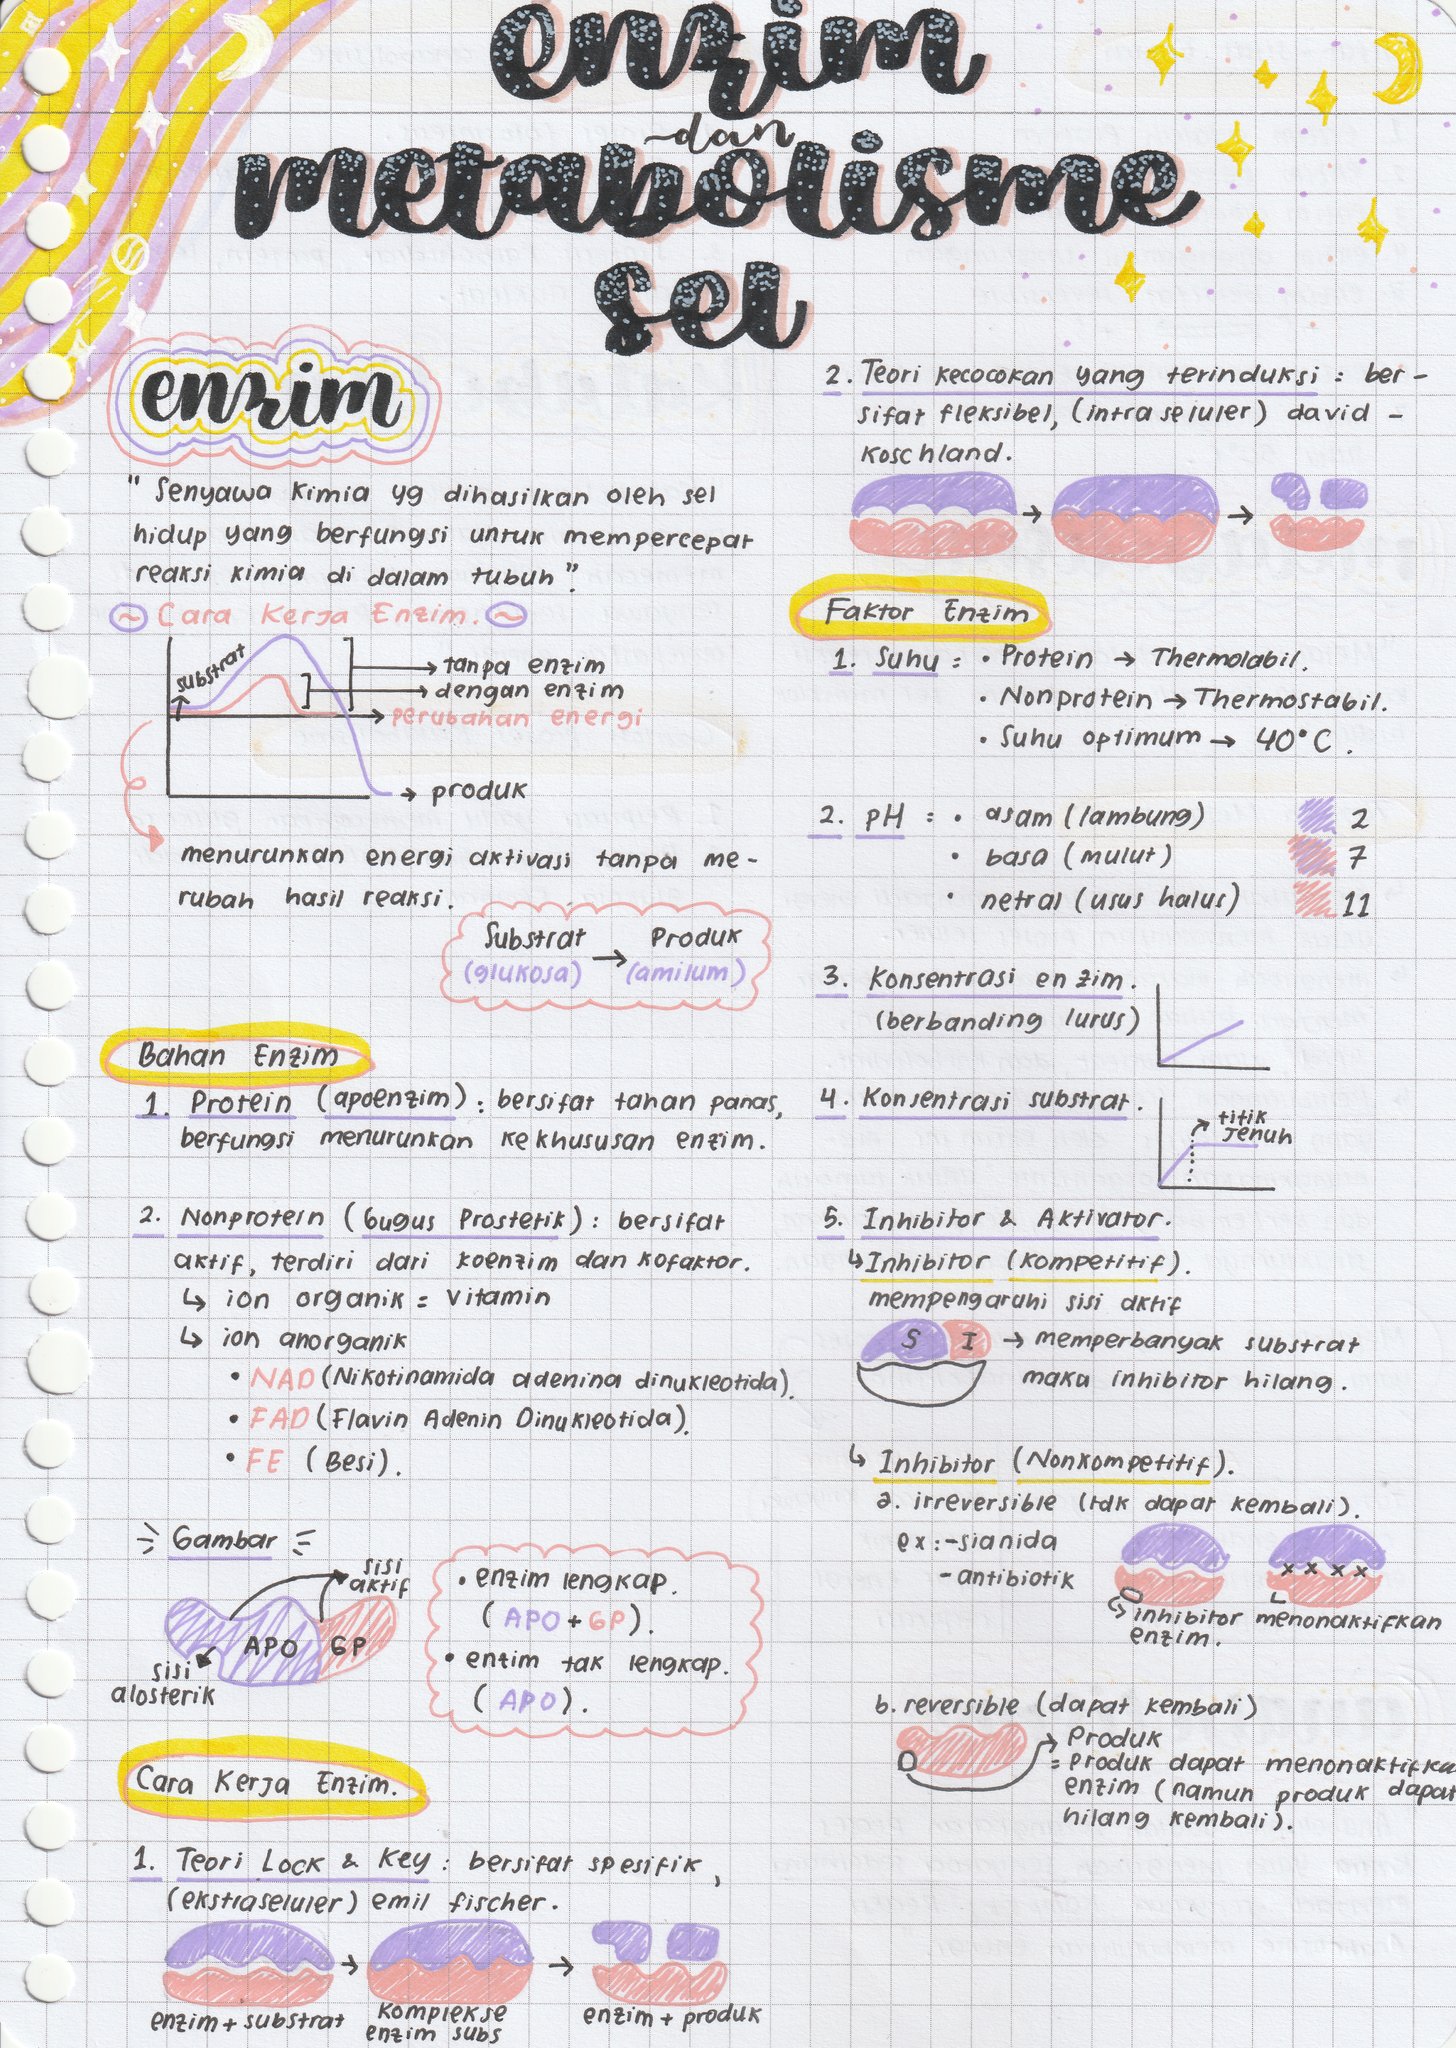 enzim
dan
metabolisme
sel
enzim
"Senyawa kimia yg dihasilkan oleh sel
hidup yang berfungsi untuk mempercepat
reaksi kimia di dalam tubuh"
~ Cara Kerja Enzim. ~
substrat
→ tanpa enzim
→ dengan enzim
→ perubahan energi
→ produk
menurunkan energi aktivasi tanpa me-
rubah hasil reaksi.
Substrat → Produk
(glukosa) (amilum)
Bahan Enzim
1. Protein (apoenzim) : bersifat tahan panas,
berfungsi menurunkan kekhususan enzim.
2. Nonprotein (Gugus Prostetik) : bersifat
aktif, terdiri dari koenzim dan kofaktor.
↳ ion organik = vitamin
↳ ion anorganik
• NAD (Nikotinamida adenina dinukleotida).
• FAD (Flavin Adenin Dinukleotida).
• FE (Besi).
Gambar
sisi
aktif
APO GP
sisi
alosterik
• enzim lengkap.
(APO + GP).
• enzim tak lengkap.
(APO).
Cara Kerja Enzim.
1. Teori Lock & Key : bersifat spesifik,
(ekstraseluler) emil fischer.
enzim + substrat
komplekse
enzim subs
enzim + produk
2. Teori kecocokan yang terinduksi : ber-
sifat fleksibel, (intraseluler) david -
koschland.
Faktor Enzim
1. Suhu : • Protein → Thermolabil.
• Nonprotein → Thermostabil.
• Suhu optimum → 40°C.
2. pH : • asam (lambung) 2
• basa (mulut) 7
• netral (usus halus) 11
3. Konsentrasi enzim.
(berbanding lurus)
4. Konsentrasi substrat.
titik
Jenuh
5. Inhibitor & Aktivator.
↳ Inhibitor (Kompetitif).
mempengaruhi sisi aktif
S I → memperbanyak substrat
maka inhibitor hilang.
↳ Inhibitor (Nonkompetitif).
a. irreversible (tdk dapat kembali).
ex : - sianida
- antibiotik
inhibitor menonaktifkan
enzim.
b. reversible (dapat kembali)
→ Produk
= Produk dapat menonaktifka
enzim (namun produk dapat
hilang kembali).